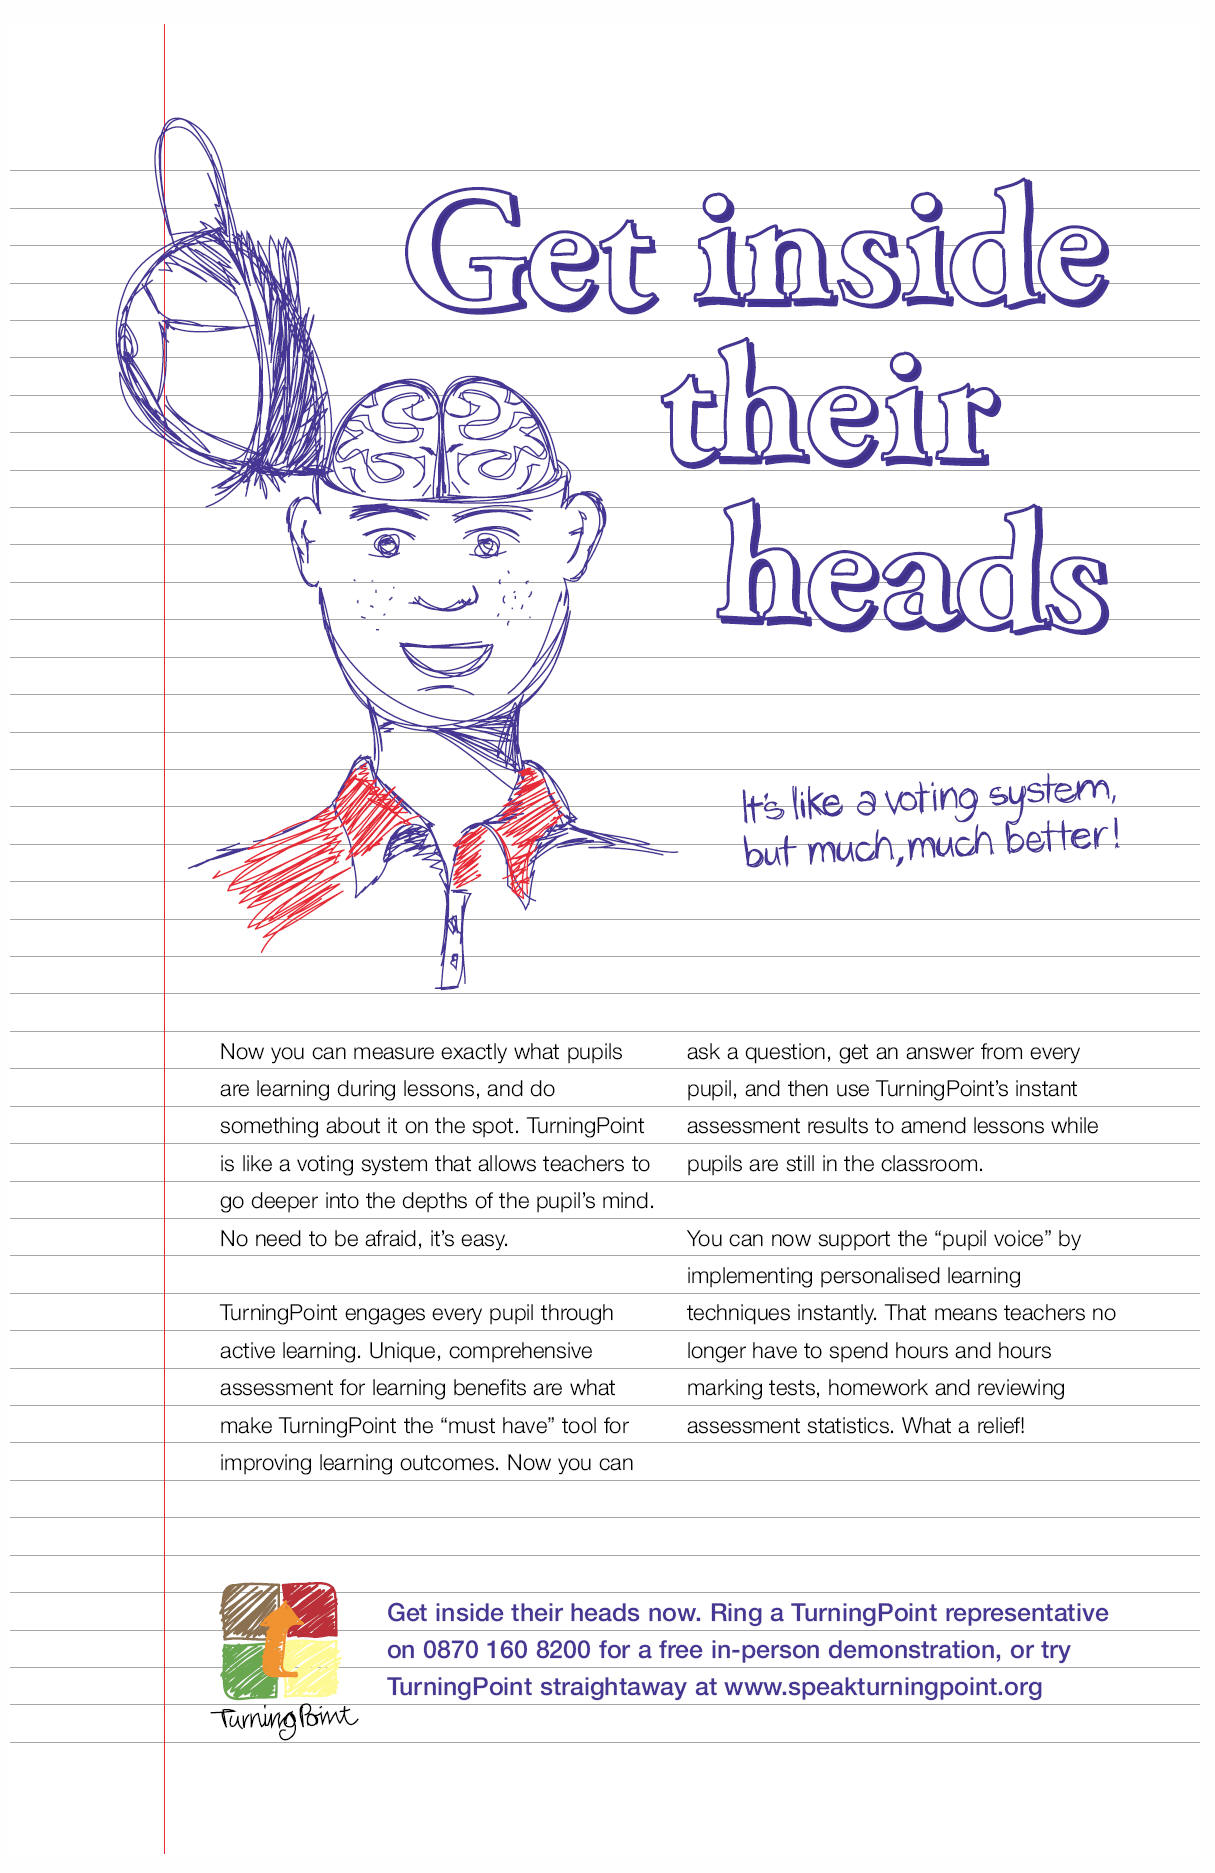 Get inside
their
heads
It's like a voting system,
but much, much better!
Now you can measure exactly what pupils
are learning during lessons, and do
something about it on the spot. TurningPoint
is like a voting system that allows teachers to
go deeper into the depths of the pupil’s mind.
No need to be afraid, it’s easy.
TurningPoint engages every pupil through
active learning. Unique, comprehensive
assessment for learning benefits are what
make TurningPoint the “must have” tool for
improving learning outcomes. Now you can
ask a question, get an answer from every
pupil, and then use TurningPoint’s instant
assessment results to amend lessons while
pupils are still in the classroom.
You can now support the “pupil voice” by
implementing personalised learning
techniques instantly. That means teachers no
longer have to spend hours and hours
marking tests, homework and reviewing
assessment statistics. What a relief!
Get inside their heads now. Ring a TurningPoint representative
on 0870 160 8200 for a free in-person demonstration, or try
TurningPoint straightaway at www.speakturningpoint.org
TurningPoint